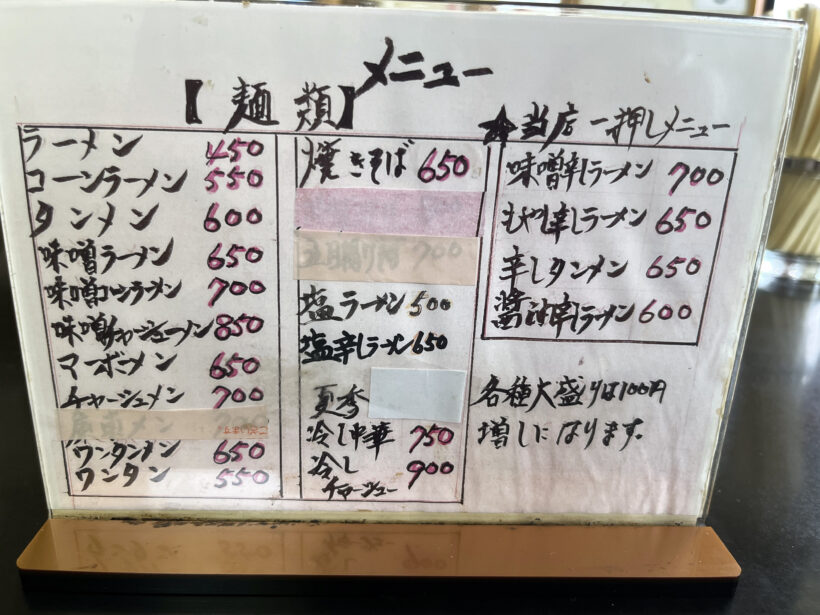 メニュー
【麺類】
ラーメン 450
コーンラーメン 550
タンメン 600
味噌ラーメン 650
味噌コーンラーメン 700
味噌チャーシューメン 850
マーボメン 650
チャーシュメン 700
ワンタンメン 650
ワンタン 550
焼きそば 650
五目 700
塩ラーメン 500
塩辛しラーメン 650
夏季
冷し中華 750
冷し
チャーシュー 900
★当店一押しメニュー
味噌辛しラーメン 700
もやし辛しラーメン 650
辛しタンメン 650
醤油辛しラーメン 600
各種大盛りは100円
増しになります.